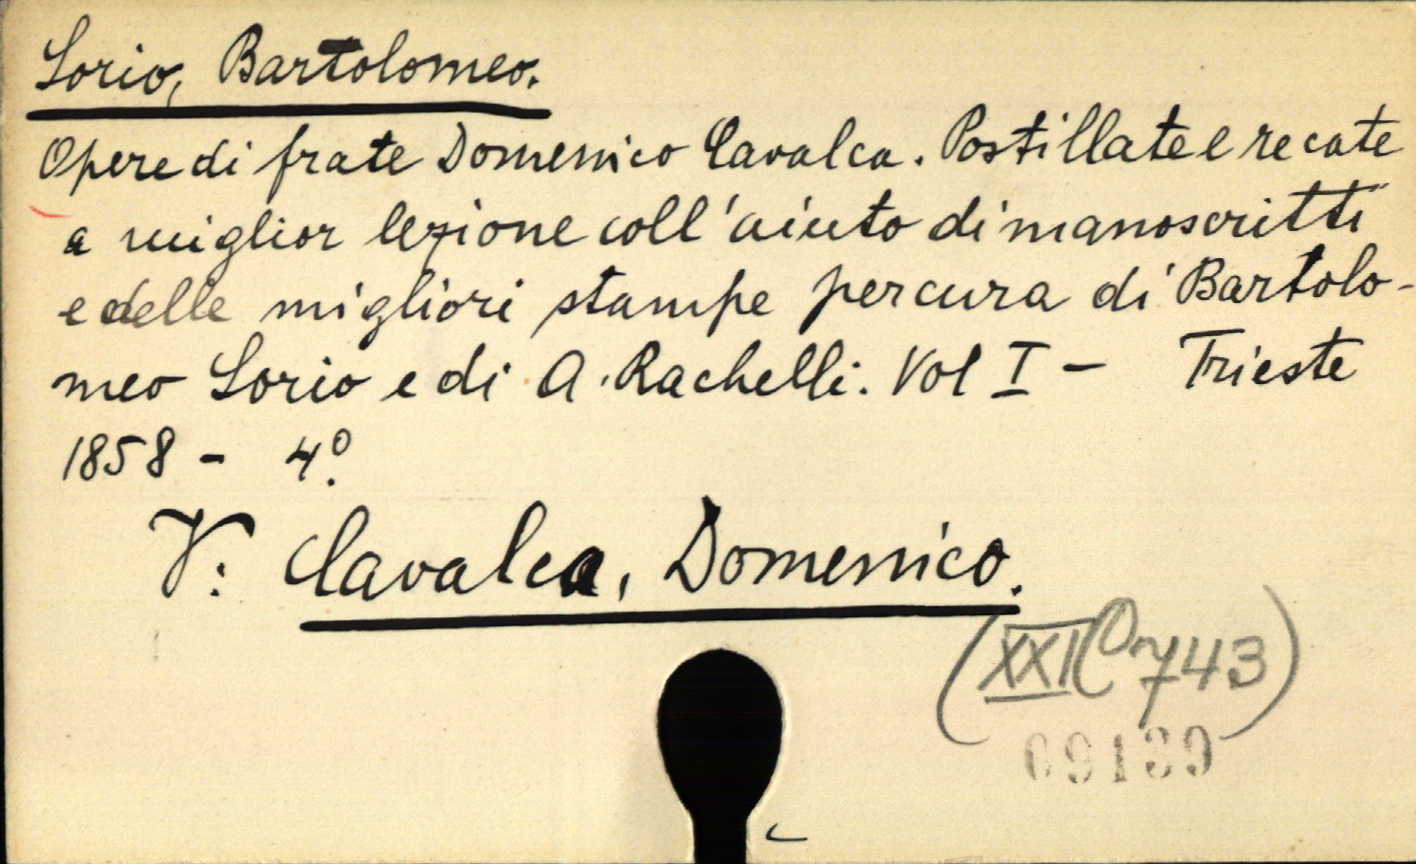 Sorio, Bartolomeo.
Opere di frate Domenico Cavalca. Postillate e recate
a miglior lezione coll'aiuto di manoscritti
e delle migliori stampe per cura di Bartolo-
meo Sorio e di A. Rachelli. Vol I - Trieste
1858 - 4º.
V: Cavalca, Domenico.
(XXI 743)
09139